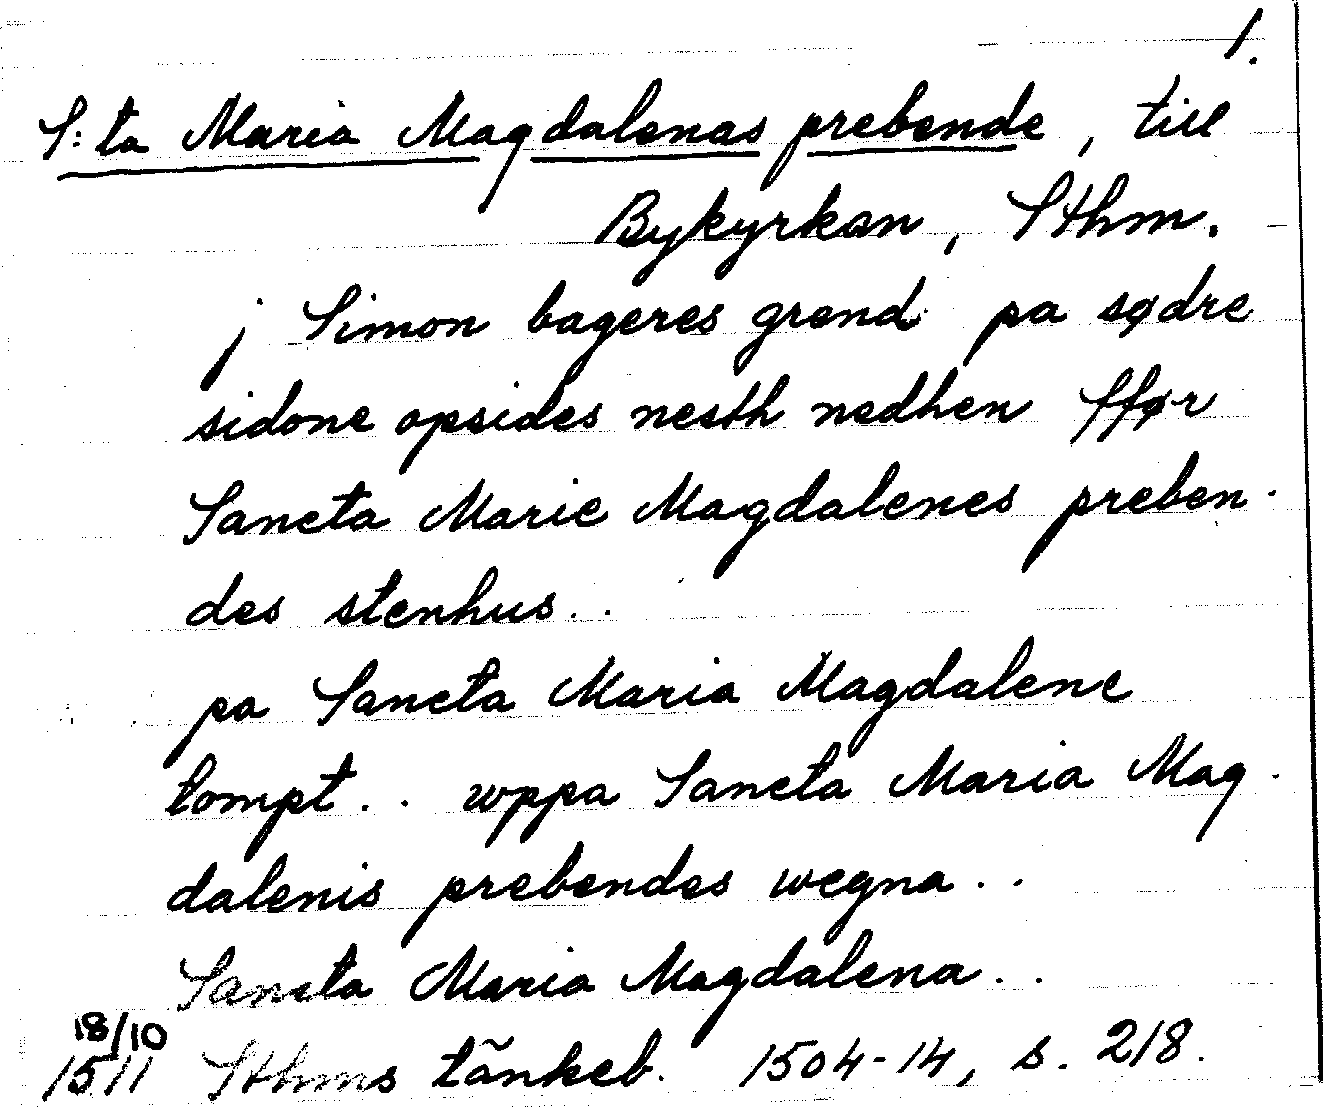 1.
S:ta Maria Magdalenas prebende, till
Bykyrkan, Sthm.
j Simon bageres grend pa sødre
sidone opsides nesth nedhen fför
Sancta Marie Magdalenes preben-
des stenhus..
pa Sancta Maria Magdalene
tompt.. wppa Sancta Maria Mag-
dalenis prebendes wegna..
Sancta Maria Magdalena..
18/10
1511 Sthms tänkeb. 1504-14, s. 218.